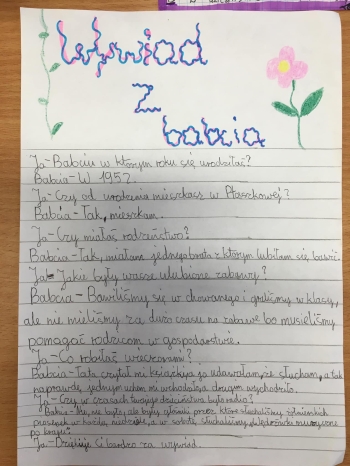 Wywiad
z
babcią
Ja-Babciu w którym roku się urodziłaś?
Babcia-W 1952.
Ja-Czy od urodzenia mieszkasz w Ptaszkowej?
Babcia-Tak, mieszkam.
Ja-Czy miałaś rodzeństwo?
Babcia-Tak, miałam jednego brata z którym lubiłam się bawić.
Ja-Jakie były wasze ulubione zabawy?
Babcia-Bawiliśmy się w chowanego i graliśmy w klasy,
ale nie mieliśmy za dużo czasu na zabawę bo musieliśmy
pomagać rodzicom w gospodarstwie.
Ja-Co robiłaś wieczorami?
Babcia-Tata czytał mi książki ja udawałam, że słucham, a tak
naprawdę jednym uchem mi wchodziło a drugim wychodziło.
Ja-Czy w czasach twojego dzieciństwa było radio?
Babcia-No, nie było, ale były głośniki przez które słuchaliśmy
w każdą niedzielę, a w sobotę słuchaliśmy muzyczne
po kraju".
Ja-Dziękuję ci bardzo za wywiad.